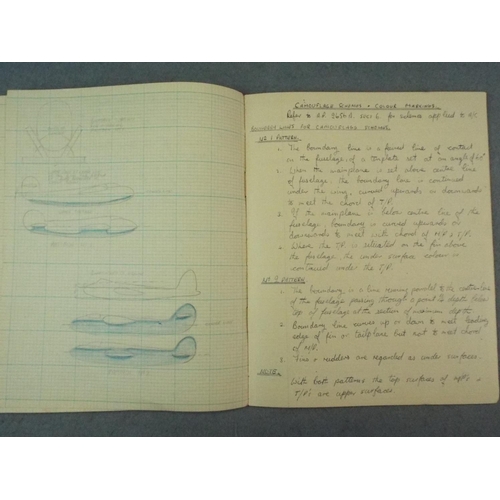 CAMOUFLAGE & COLOUR MARKINGS
Refer to AP 2656A sect 6 for schemes applied to A/C
BOUNDARY LINES FOR CAMOUFLAGE SCHEME.
No 1 PATTERN.
1. The boundary line is a faired line of contact
on the fuselage, of a template set at an angle of 60°
2. When the mainplane is set above centre line
of fuselage, the boundary line is continued
under the wing, curved upwards or downwards
to meet the chord of T.P.
3. If the mainplane is below centre line of the
fuselage, boundary is curved upwards or
downwards to meet with chord of M/P & T/P.
4. Where the T.P. is situated on the fin above
the fuselage, the under surface colour is
continued under the T/P.
No 2 PATTERN
1. The boundary is a line running parallel to the centre line
of the fuselage passing through a point depth below
top of fuselage at the section of maximum depth.
2. Boundary line curves up or down to meet leading
edge of fin or tailplane but not to meet chord
of M/P.
3. Fins & rudders are regarded as under surfaces.
With both patterns the top surfaces of M/P's &
T/P's are upper surfaces.